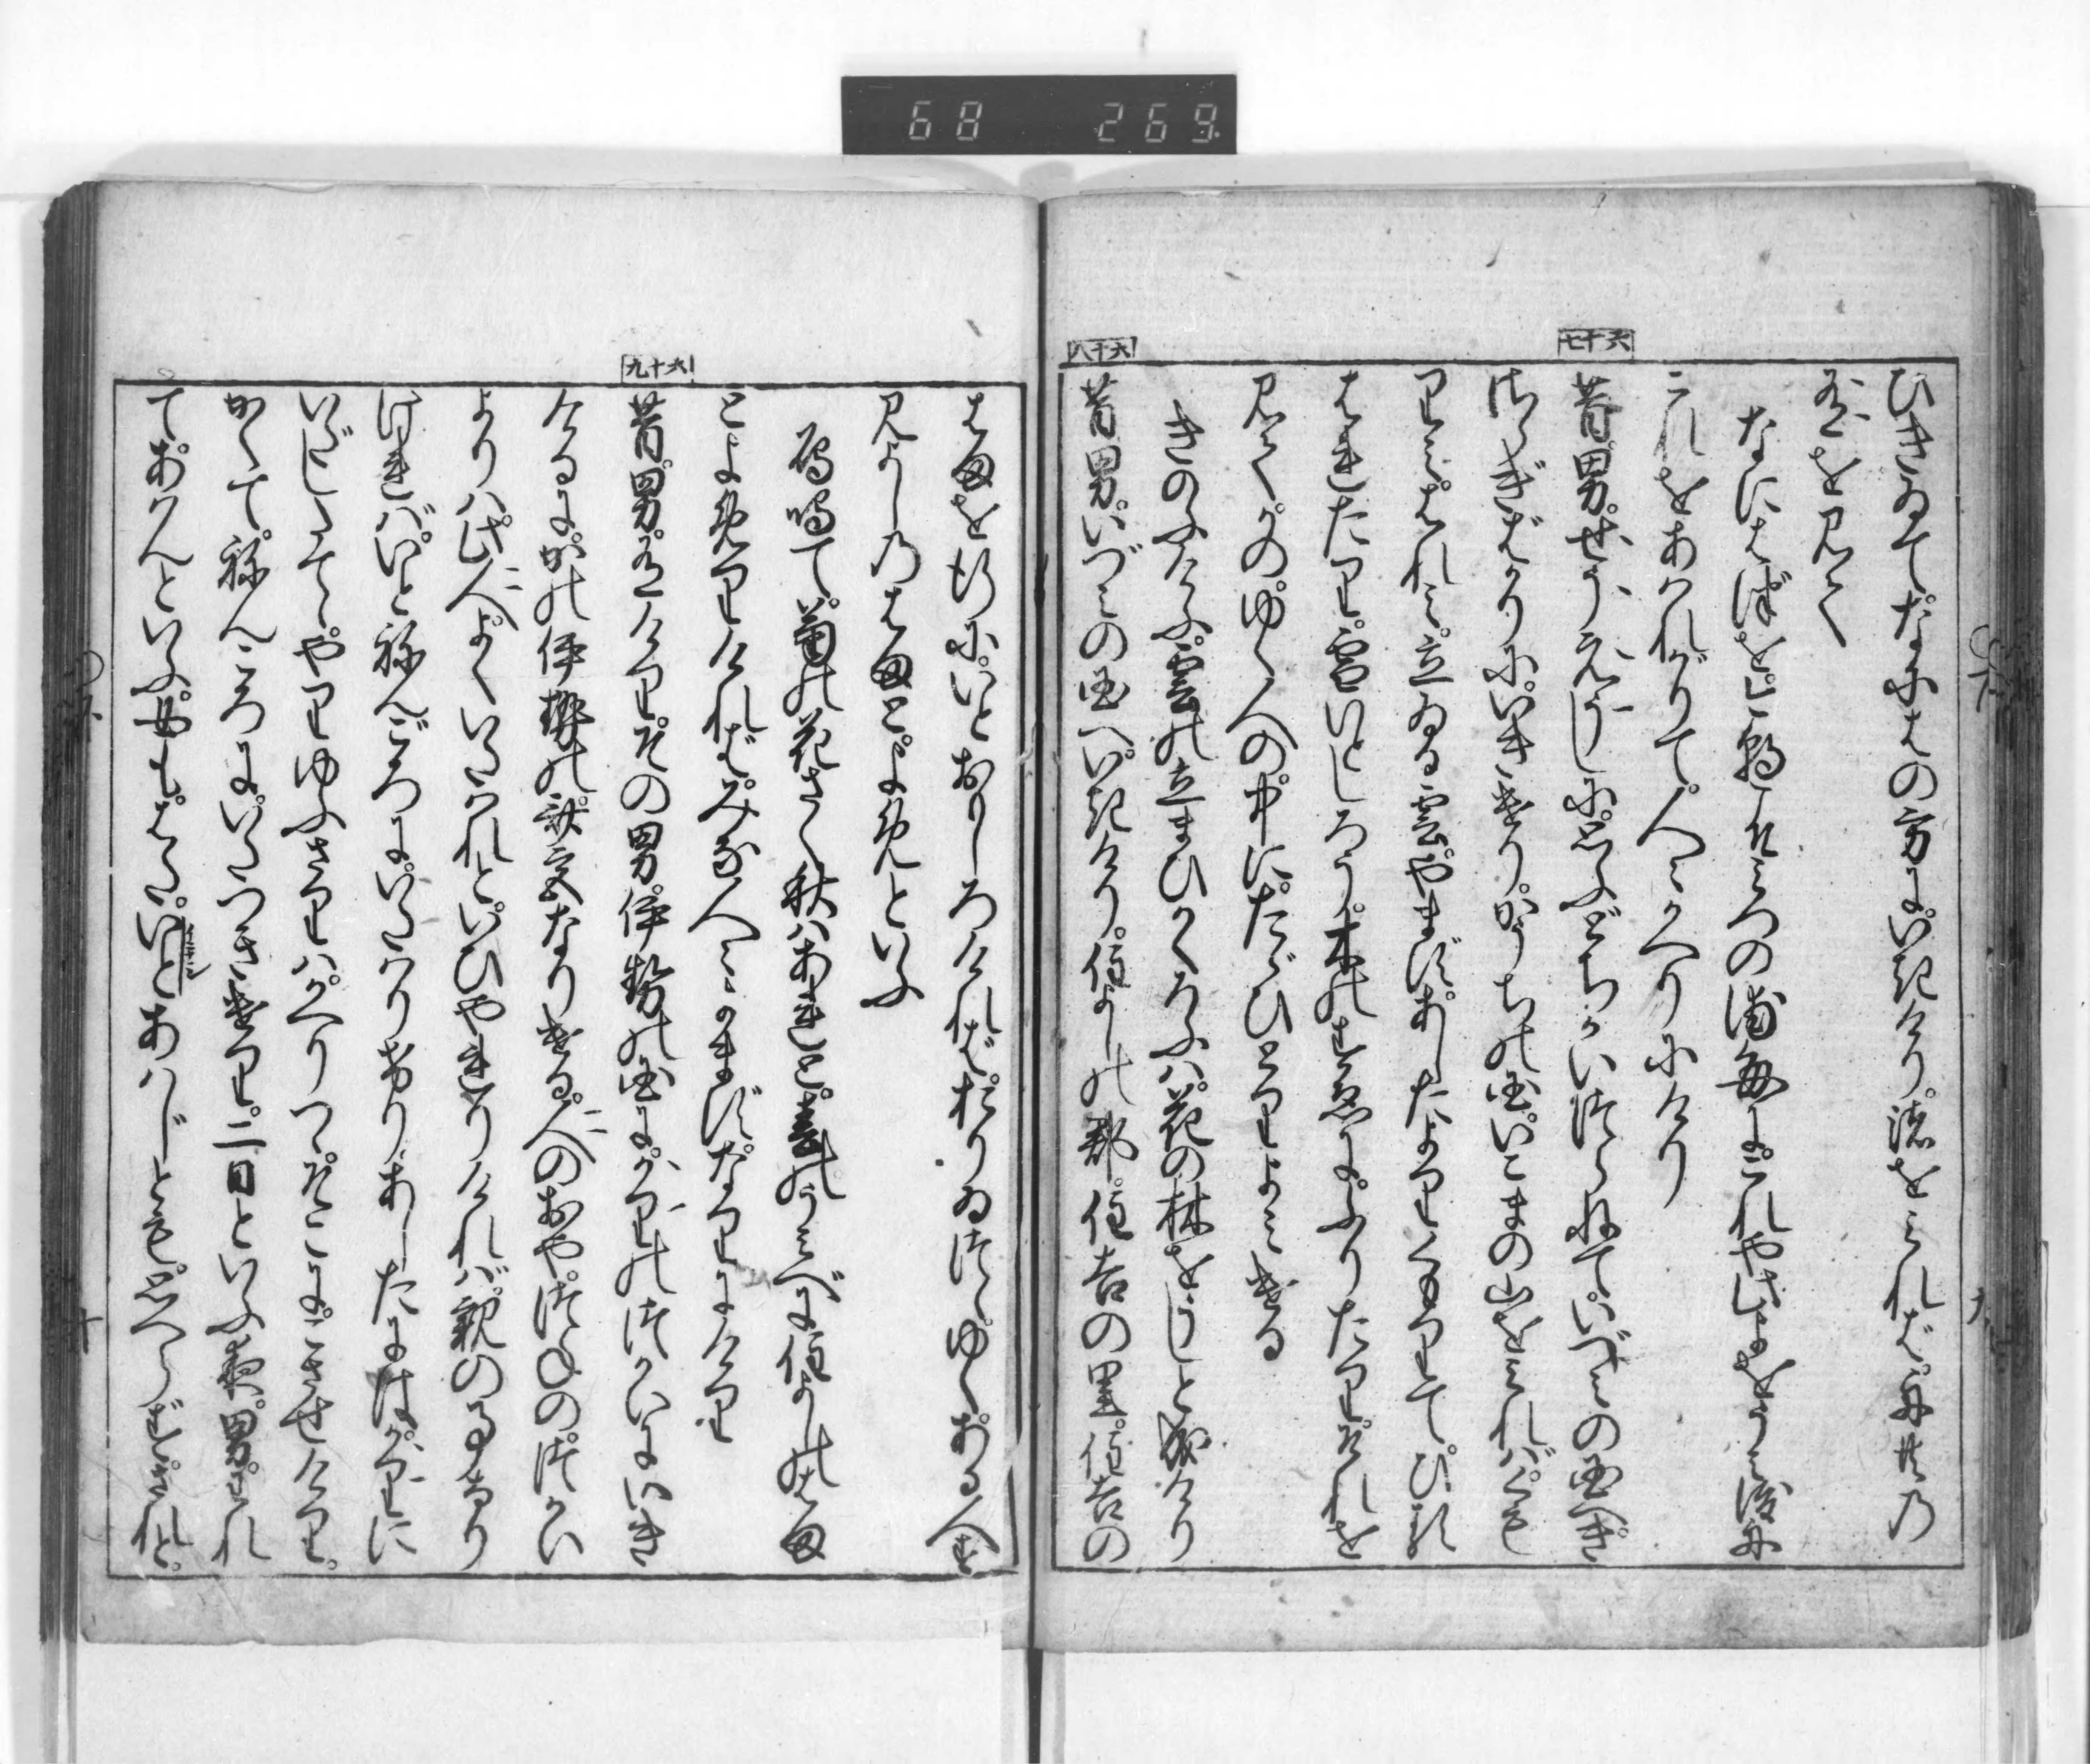 68 269.
ひきゐて。なにはの方に。いきけり。渚をみれば。舟共の
有を見て
なにはづを。こ朝こそみつの浦毎に。これや此世をうみ渡る舟
これをあはれがりて。人〻かへりにけり
六十七
昔。男。せうえうしに。思ふどちかいつらねて。いづみの国へ。き
さらぎばかりに。いきけり。かうちの国。いこまの山をみれば。くも
りみ。はれみ。立ゐる雲やまず。あしたよりくもりて。ひる
はれたり。雪いとしろう。木のすゑに。ふりたり。それを
見て。かの。ゆく人の。中に。たゞひとりよみける
きのふけふ。雲の立まひかくろふハ。花の林をうしと成けり
六十八
昔。男。いづみの国へ。いきけり。住よしの郡。住吉の里。住吉の
はまを行に。いとおもしろければ。おりゐつゝゆく。ある人
見よしのはまと。よめといふ
鴈鳴て。菊の花さく秋ハあれど。春のうみべに住よしのはま
とよめりければ。みな人〻よまずなりにけり
六十九
昔。男。有けり。その男。伊勢の国に。かりのつかいにいき
けるに。かの伊勢の。斎宮なりける。人のおや。つねのつかい
よりハ。此人よくいたはれと。いひやれりけれバ。親のことなり
けれバ。いとねんごろに。いたはりけり。あしたにはかりに
いだしたてゝ。やりゆふさりハ。かへりつゝ。そこに。こさせけり。
かくて。ねんころに。いたつきけり。二日といふ夜。男。われ
てあはんといふ。女もはた。いとあハじとも。思へらず。されど。